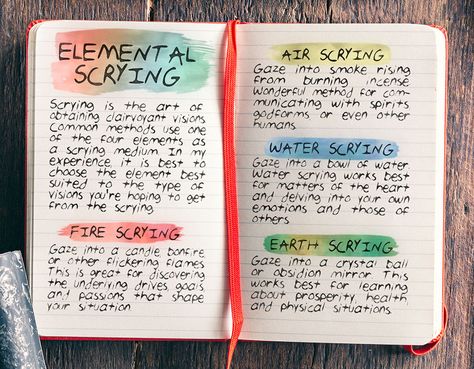 ELEMENTAL
SCRYING
Scrying is the art of
obtaining clairvoyant visions.
Common methods use one
of the four elements as
a scrying medium. In my
experience, it is best to
choose the element best
suited to the type of
visions you're hoping to get
from the scrying.
FIRE SCRYING
Gaze into a candle, bonfire,
or other flickering flames.
This is great for discovering
the underlying drives, goals,
and passions that shape
your situation.
AIR SCRYING
Gaze into smoke rising
from burning incense.
Wonderful method for com-
municating with spirits,
godforms, or even other
humans.
WATER SCRYING
Gaze into a bowl of water.
Water scrying works best
for matters of the heart
and delving into your own
emotions and those of
others.
EARTH SCRYING
Gaze into a crystal ball
or obsidian mirror. This
works best for learning
about prosperity, health,
and physical situations.